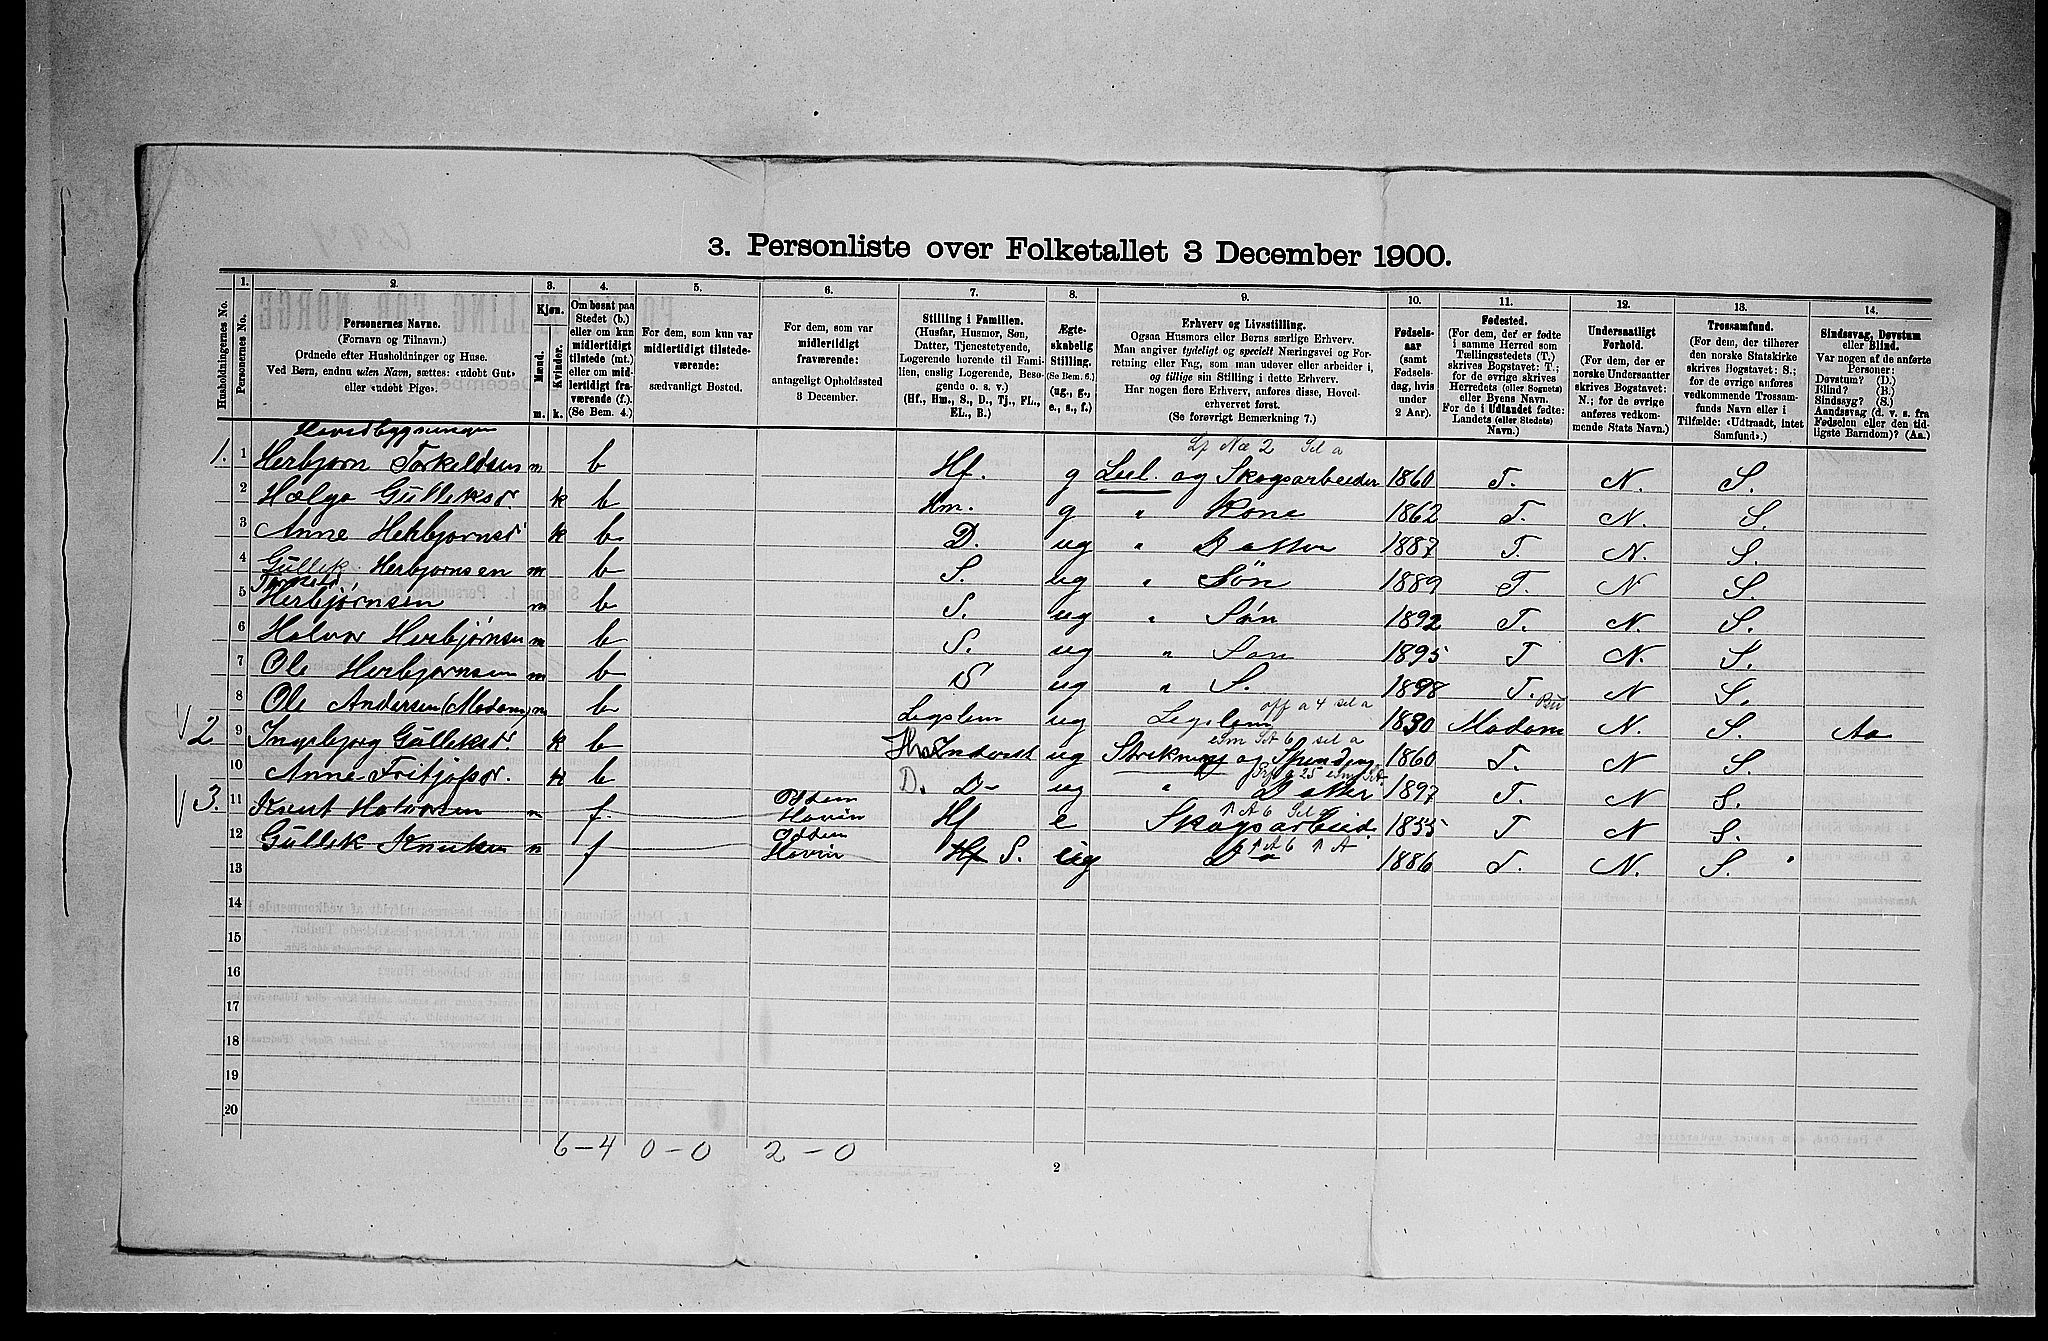 3. Personliste over Folketallet 3 December 1900.
Husholdningernes No.
1. Personernes No.
2. Personernes Navne. (Fornavn og Tilnavn.) Ordnede efter Husholdninger og Huse. Ved Børn, endnu uden Navn, sættes: «udøbt Gut» eller «udøbt Pige».
3. Kjøn. Mænd. m. Kvinder. k.
4. Om bosat paa Stedet (b.) eller om kun midlertidigt tilstede (mt.) eller om midlertidigt fraværende (f.). (Se Bem. 4.)
5. For dem, som kun var midlertidigt tilstedeværende: sædvanligt Bosted.
6. For dem, som var midlertidigt fraværende: antageligt Opholdssted 3 December.
7. Stilling i Familien. (Husfar, Husmor, Søn, Datter, Tjenestetyende, Logerende hørende til Familien, enslig Logerende, Besøgende o. s. v.) (Hf., Hm., S., D., Tj., FL., EL., B.)
8. Ægteskabelig Stilling. (Se Bem. 6.) (ug., g., e., s., f.)
9. Erhverv og Livsstilling. Ogsaa Husmors eller Børns særlige Erhverv. Man angiver tydeligt og specielt Næringsvei og Forretning eller Fag, som man udøver eller arbeider i, og tillige sin Stilling i dette Erhverv. Har nogen flere Erhverv, anføres disse, Hovederhvervet først. (Se forøvrigt Bemærkning 7.)
10. Fødselsaar (samt Fødselsdag, hvis under 2 Aar).
11. Fødested. (For dem, der er fødte i samme Herred som Tællingsstedets (T.) skrives Bogstavet: T.; for de øvrige skrives Herredets (eller Sognets) eller Byens Navn. For de i Udlandet fødte: Landets (eller Stedets) Navn.)
12. Undersaatligt Forhold. (For dem, der er norske Undersaatter skrives Bogstavet: N.; for de øvrige anføres vedkommende Stats Navn.)
13. Trossamfund. (For dem, der tilhører den norske Statskirke skrives Bogstavet: S.; for de øvrige anføres vedkommende Trossamfunds Navn eller i Tilfælde: «Udtraadt, intet Samfund».)
14. Sindssvag, Døvstum eller Blind. Var nogen af de anførte Personer: Døvstum? (D.) Blind? (B.) Sindssyg? (S.) Aandssvag (d. v. s. fra Fødselen eller den tidligste Barndom)? (Aa.)
Hovedbygningen
1. 1 Herbjørn Torkeldsen m b Hf. g Leil. og Skogsarbeider 1860 T. N. S.
2 Hælge Gulleksd. k b Hm. g " Kone 1862 T. N. S.
3 Anne Herbjørnsd k b D. ug " Datter 1887 T. N. S.
4 Gullek Herbjørnsen m b S. ug " Søn 1889 T. N S.
5 Torkeld Herbjørnsen m b S. ug " Søn 1892 T. N. S.
6 Halvor Herbjørnsen m b S. ug " Søn 1895 T N. S.
7 Ole Herbjørnsen m b S ug " S. 1898 T. N S.
8 Ole Andersen (Modum) m b Legslem ug Legslem 1830 Modum N. S. Aa
2 9 Ingebjørg Gulleksd. k b ug Strikning og Spinding 1860 T. N S.
10 Anne Fritjofsd. k b D. D- ug " Datter 1897 T. N S.
3. 11 Knut Halvorsen m f. Hovin Hf e Skogsarbeid. 1855 T N S.
12 Gullek Knutsen m f Hovin Hf S. ug 1886 T. N. S.
13
14
15
16
17
18
19
20
6-4 0-0 2-0
2